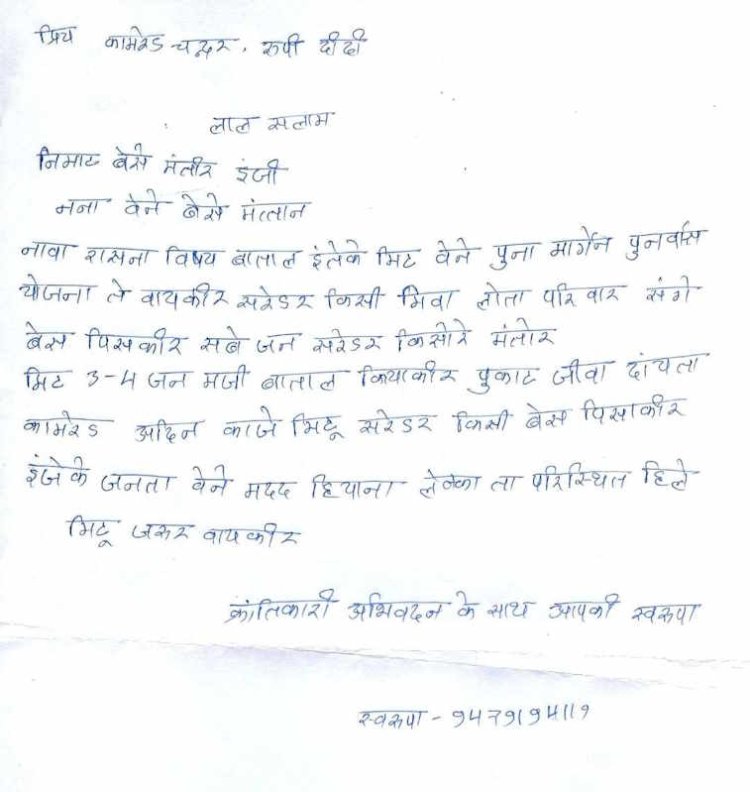 प्रिय कामरेड चन्दर, रुपी दीदी
लाल सलाम
निमाट बेसे मंतीर इंजी
नना वेने बेसे मंत्तान
नावा रासना विषय बाताल इंतेके मिट वेने पुना मार्गेन पुनर्वास
योजना ते वायकीर सरेंडर किसी मिवा लोता परिवार संगे
बेस पिसकीर सबे जन सरेंडर किसोरे मंतोर
मिट 3-4 जन मजी बाताल कियाकीर पुकाट जीवा दांयता
कामरेड अदिन काजे मिटू सरेंडर किसी बेस पिसाकीर
इंजेके जनता वेने मदद हियाना लेक्का ता परिस्थित हिले
मिटू जरुर वायकीर
क्रांतिकारी अभिवदन के साथ आपकी स्वरूपा
स्वरूपा - 9479194119